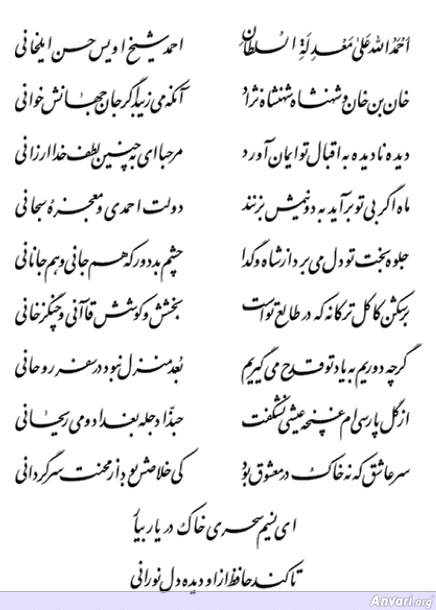 احمدُ اللهَ عَلیٰ مَعْدِلَةِ السُلطانِ احمد شیخ اویس حسن ایلخانی
خان بن خان و شهنشاه شهنشاه نژاد آنکه می زیبد اگر جان جهانش خوانی
دیده نادیده به اقبال تو ایمان آورد مرحبا ای به چنین لطف خدا ارزانی
ماه اگر بی تو برآید به دو نیمش بزنند دولت احمدی و معجزهٔ سبحانی
جلوه بخت تو دل می برد از شاه و گدا چشم بد دور که هم جانی و هم جانانی
برشکن کاکل ترکانه که در طالع تو است بخشش و کوشش قاآنی و چنگزخانی
گرچه دوریم به یاد تو قدح می گیریم بُعد منزل نبود در سفر روحانی
از گل پارسی ام غنچه عیشی نشکفت حبّذا دجله بغداد و می ریحانی
سر عاشق که نه خاک در معشوق بود کی خلاصش بود از محنت سرگردانی
ای نسیم سحری خاک در یار بیار
تا کند حافظ از او دیده دل نورانی
Anvari.org